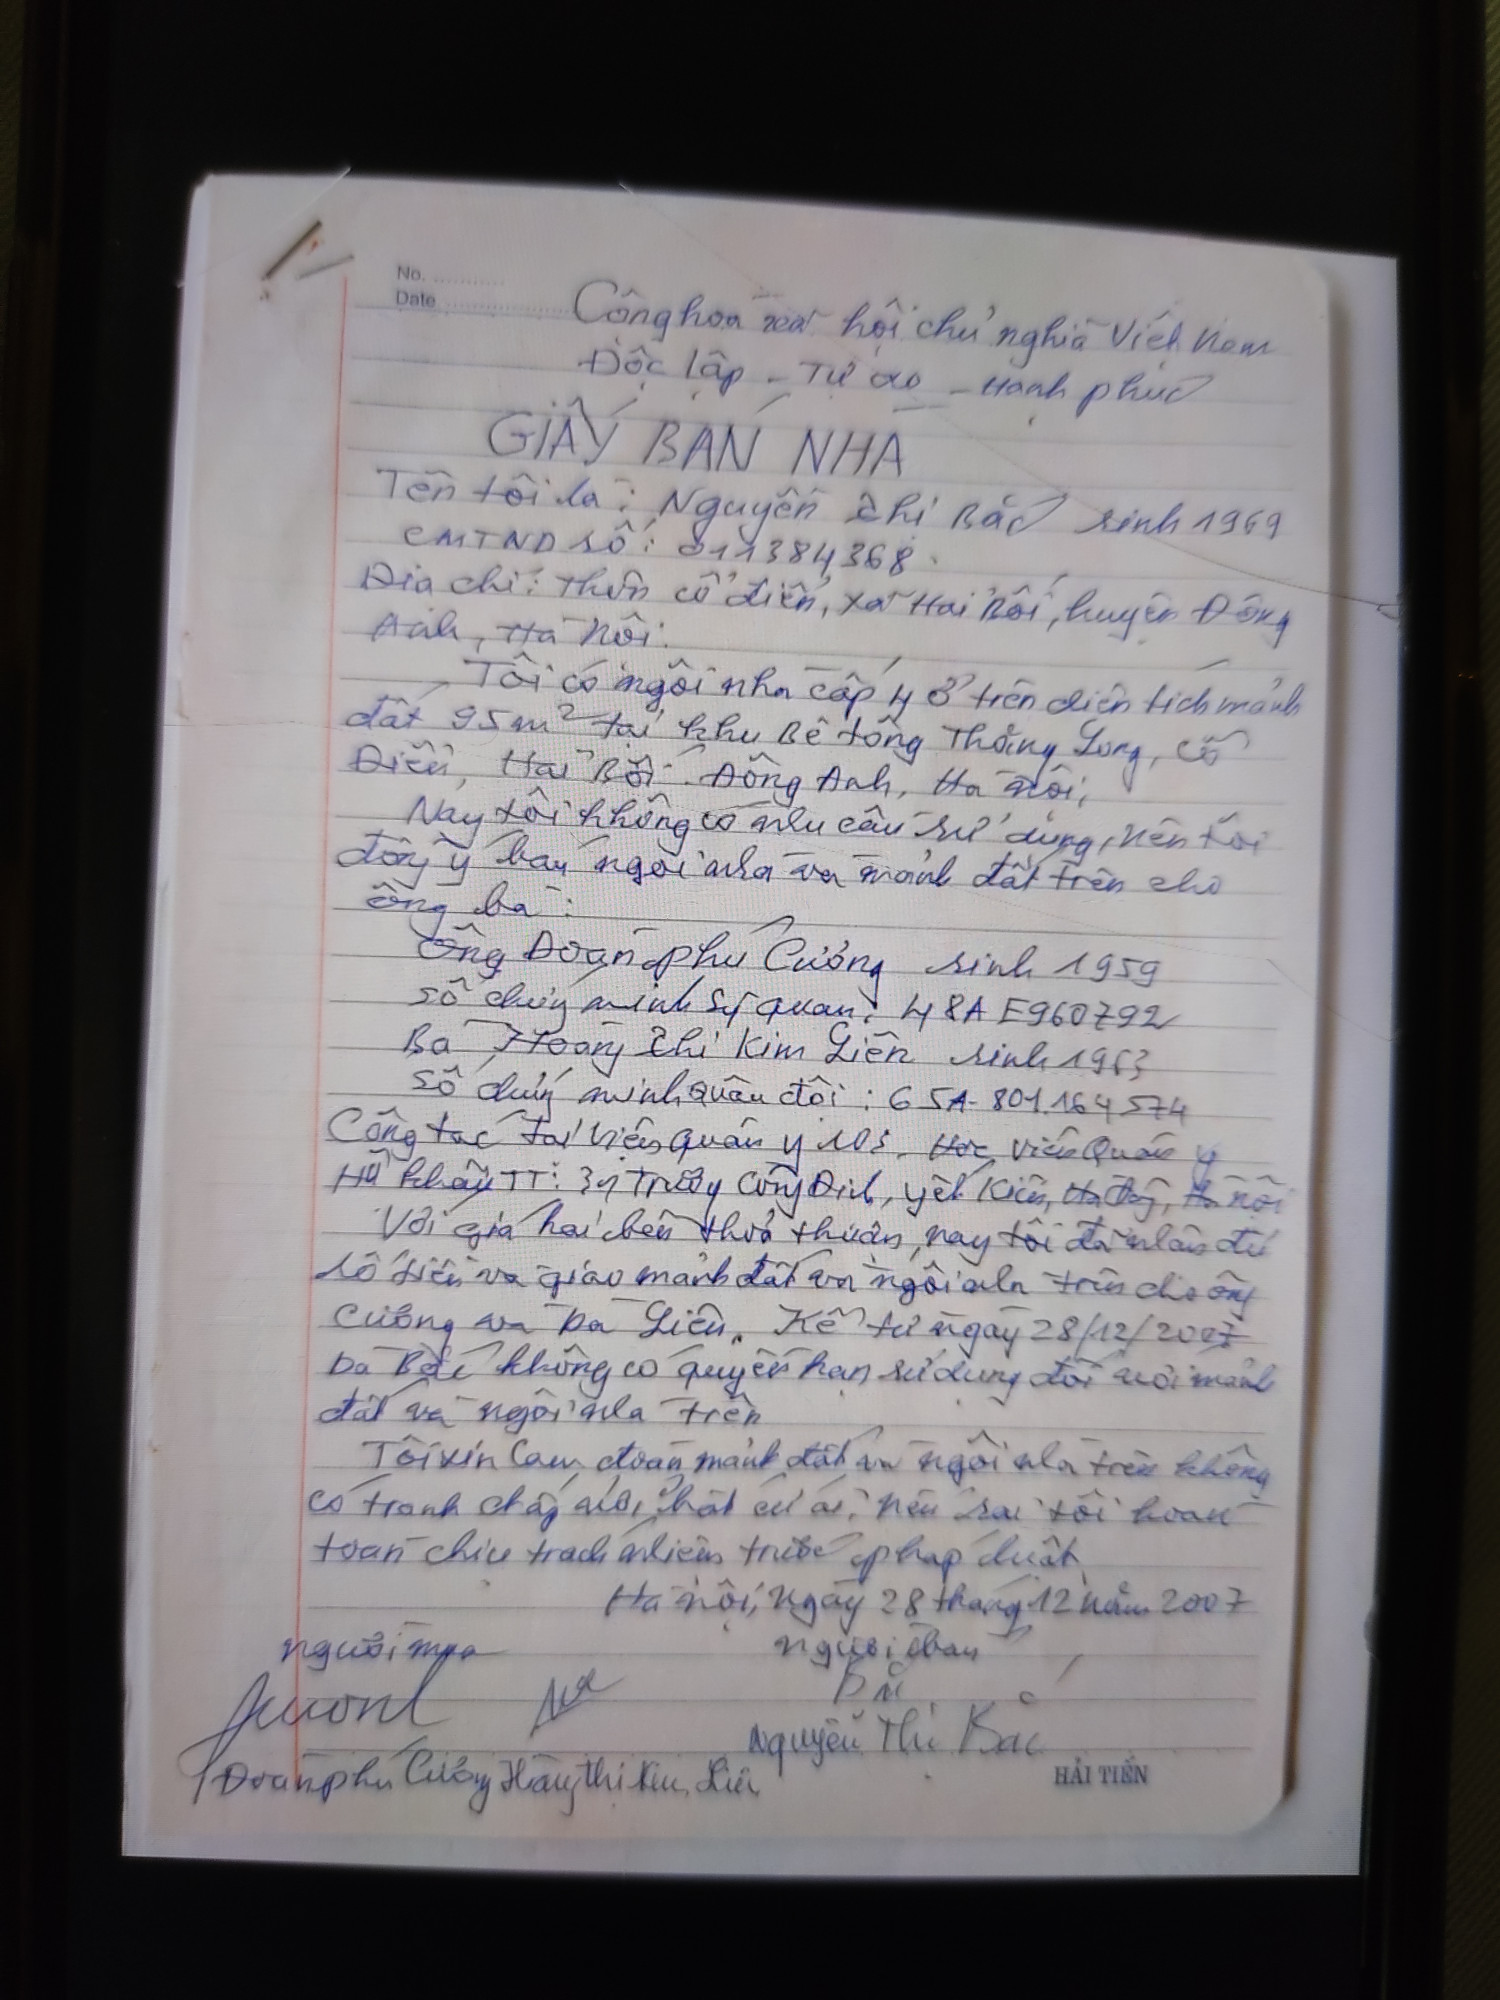 No. ............
Date .....................
Cộng hòa xã hội chủ nghĩa Việt Nam
Độc lập - Tự do - Hạnh phúc
GIẤY BÁN NHÀ
Tên tôi là : Nguyễn Thị Bắc sinh 1969
CMTND số : 011384368.
Địa chỉ : Thôn cổ điển, xã Hải Bối, huyện Đông
Anh, Hà Nội.
Tôi có ngôi nhà cấp 4 ở trên diện tích mảnh
đất 95m² tại khu Bê tông Thăng Long, Cổ
Điển, Hải Bối - Đông Anh, Hà Nội,
Nay tôi không có nhu cầu sử dụng, nên tôi
đồng ý bán ngôi nhà và mảnh đất trên cho
ông bà :
Ông Đoàn phú Cường sinh 1959
Số chứng minh Sỹ quan : 48A E960792
Bà Hoàng Thị Kim Liên sinh 1963
Số chứng minh quân đội : 65A- 801.164574
Công tác tại viện Quân y 103, Học viện Quân y
Hộ khẩu TT : 34 Trương Công Định, yết Kiêu, Hà Đông, Hà nội
Với giá hai bên thỏa thuận, nay tôi đã nhận đủ
số tiền và giao mảnh đất và ngôi nhà trên cho ông
Cường và bà Liên. Kể từ ngày 28/12/2007
bà Bắc không có quyền hạn sử dụng đối với mảnh
đất và ngôi nhà trên
Tôi xin Cam đoan mảnh đất và ngôi nhà trên không
có tranh chấp với bất cứ ai, nếu sai tôi hoàn
toàn chịu trách nhiệm trước pháp luật
Hà nội, ngày 28 tháng 12 năm 2007
người mua người bán
Bắc
Nguyễn Thị Bắc
Đoàn phú Cường Hoàng Thị Kim Liên
HẢI TIẾN